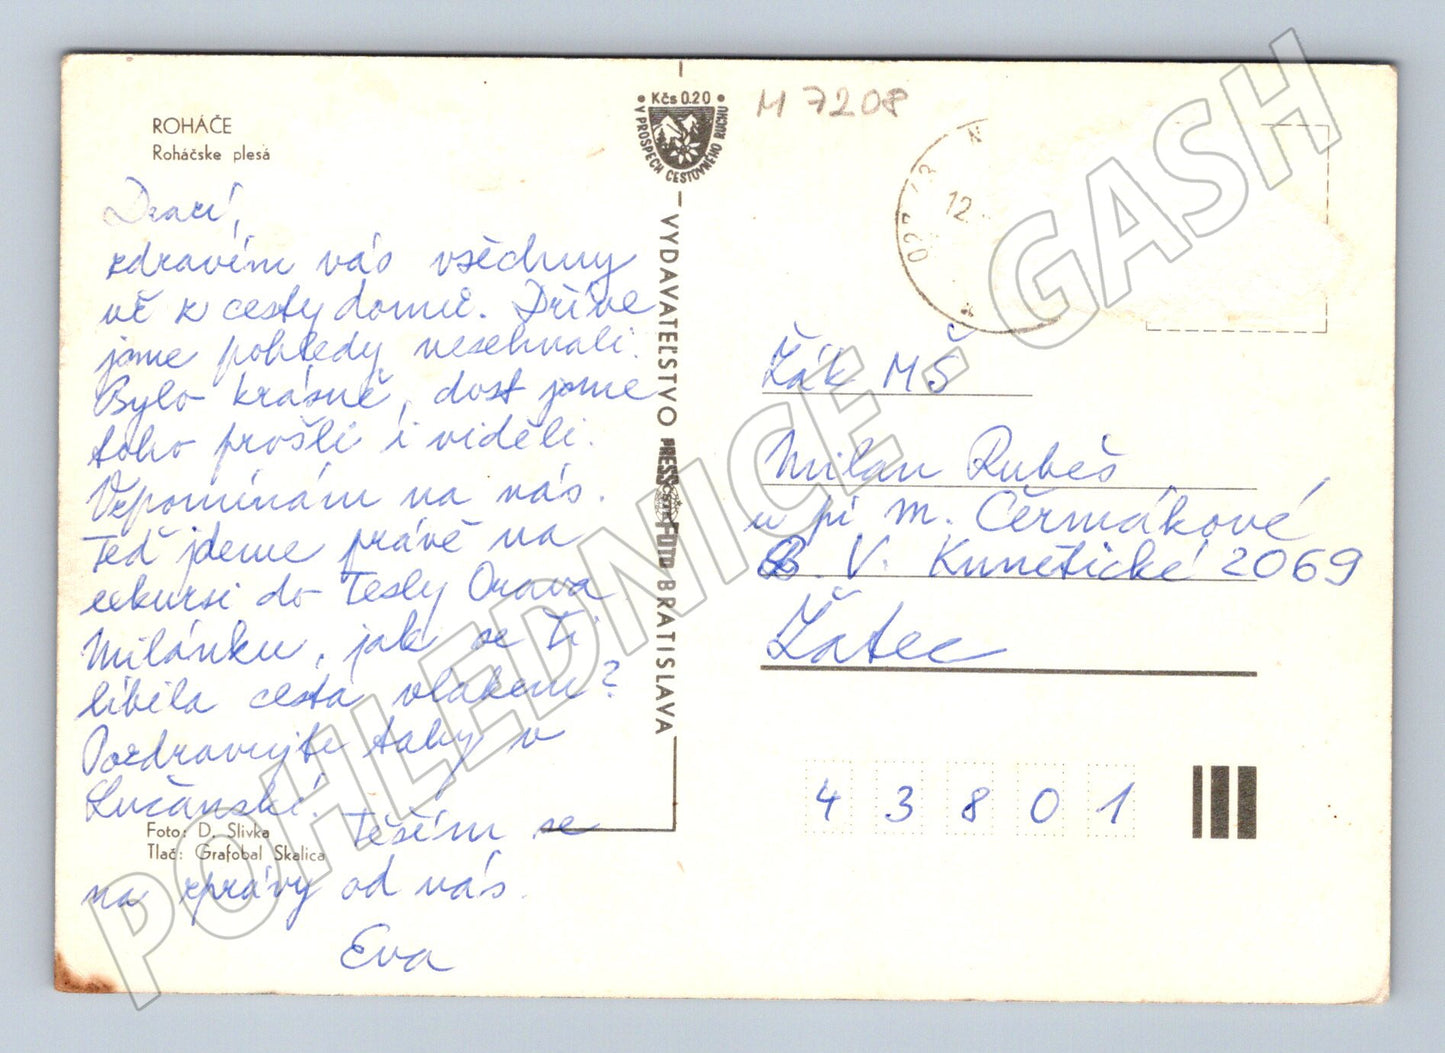 ROHÁČE
Roháčske plesá
Drazí,
zdravím vás všechny
už z cesty domů. Dříve
jsme pohledy nesehnali.
Bylo krásně, dost jsme
toho prošli i viděli.
Vzpomínám na vás.
Teď jdeme právě na
exkursi do Tesly Orava
Milánku, jak se Ti
líbila cesta vlakem?
Pozdravujte taky v
Lučanski. Těším se
na zprávy od vás.
Eva
Foto: D. Slivka
Tlač: Grafobal Skalica
Kčs 0.20
V PROSPECH CESTOVNÉHO RUCHU
VYDAVATEĽSTVO PRESSFOTO BRATISLAVA
M 7208
12.
Žák MŠ
Milan Rubeš
u pí M. Čermákové
B. V. Kunětické 2069
Žatec
43801
POHLEDNICE - GASH